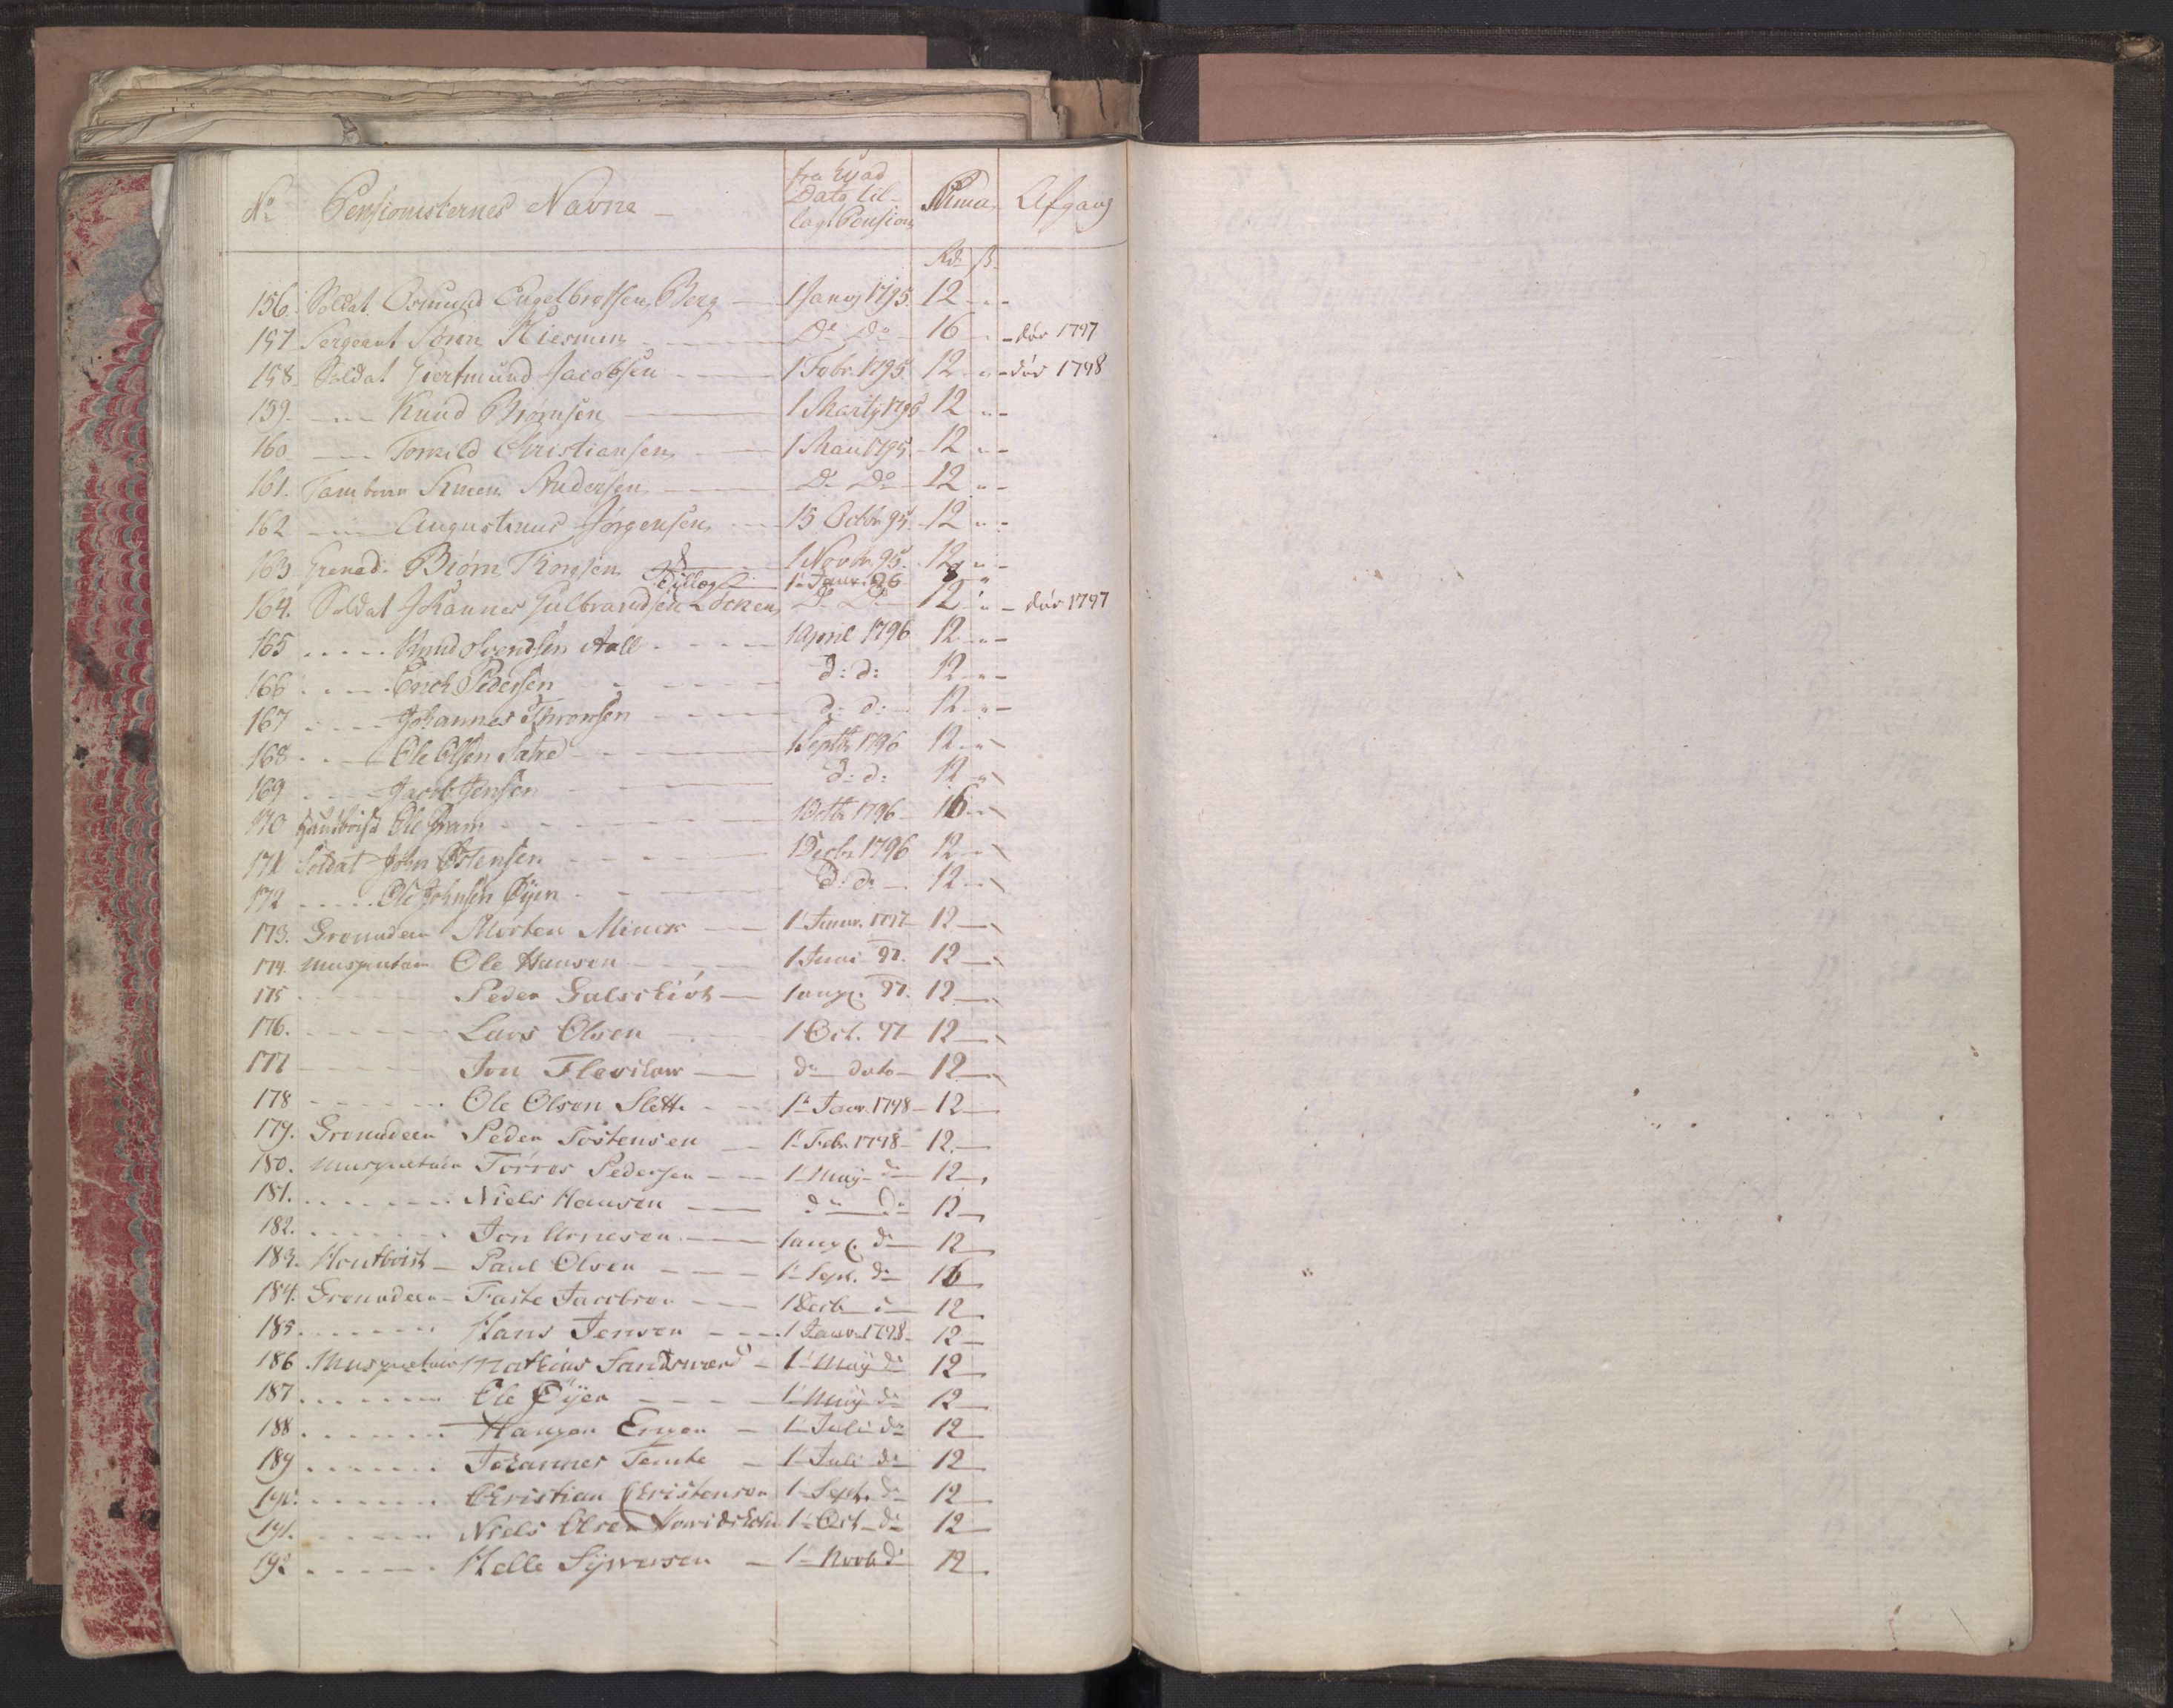 No Pensionisternes Navne fra hvad Dato til-lagt Pension Suma Afgang
Rd ß
156. Soldat Osmund Engelbretsen Berg — 1 Janr 1795. 12 " -
157 Sergeant Søren — Do Do — 16 - døde 1797
158. Soldat Giertmund Jacobsen — 1 Febr. 1795. 12 " - død 1798
159. — Knud Biørnsen — 1 Martj 1795 12 " -
160. — Torkild Christiansen — 1 Maii 1795. 12 " -
161. Tambour Simen Andersen — Do Do — 12 " -
162 — Augustinus Jørgensen — 15 Octbr 95. 12 " -
163 Grenad. Biørn — 1 Novbr. 95. 12 " -
Tillæg — 1 Janr. 96 8 "
164. Soldat Johannes Gulbrandsen Løcken Do Do — 12 " - døde 1797
165 . . . . . Knud Svendsen Aall - - - 1 April 1796 12 " -
166 . . . . Erich Pedersen - - - d: d: 12 " -
167 . . . . Johannes - - - d: d: 12 " -
168 . . . Ole Olsen Sætre - - - 1 Septbr 1796 12 " -
169 . . . . Jacob Jensen - - - d: d: 12 " -
170 Hautboist Ole Fram - - - 1 Octbr 1796 — 16 -
171 Soldat John Østensen - - - 1 Decbr 1796 12 -
172 . . . . . Ole Johnsen Øÿen - - - d: d: — 12 -
173. Grenadeer Morten Minck — 1 Janr. 1797 — 12 —
174. Musquetair Ole Hansen — 1 Juni 97. 12 —
175 - - - - Peder Galsckiöt — 1 aug. 97. 12. —
176. - - - - Lars Olsen — 1 Oct. 97 12 —
177 - - - - Jon — do dato — 12 —
178 - - - - Ole Olsen Slette - - 1 Janr. 1798 — 12 —
179. Grenadeer Peder Tostensen — 1 Febr. 1798 — 12. —
180. Musquetair Törres Pedersen — 1 Maÿ do 12 —
181. . . . . . . Niels Hansen — do do 12 —
182. . . . . . . Jon Arnesen — 1 aug. do 12 —
183. Houtboist — Paul Olsen — 1 Sept. do 16 —
184. Grenadeer — Faste Jacobsen — 1 Decb. do 12 —
185. . . . . . . Hans Jensen — 1 Janr. 1798 — 12 —
186 Musquetair Mathias Sandsværd — 1 Maÿ do 12 —
187 . . . . . . . Ole Øÿen — 1 Maÿ do 12 —
188 . . . . . . . — 1 Juli do 12 —
189 . . . . . . . Johannes Temte — 1 Juli do 12 —
190. . . . . . . Christian Christensen 1 Sept. do 12 —
191. . . . . . . Niels Olsen 1 Oct. do 12 —
192 . . . . . . . Helle Sÿwersen — 1 Novb. do 12 —